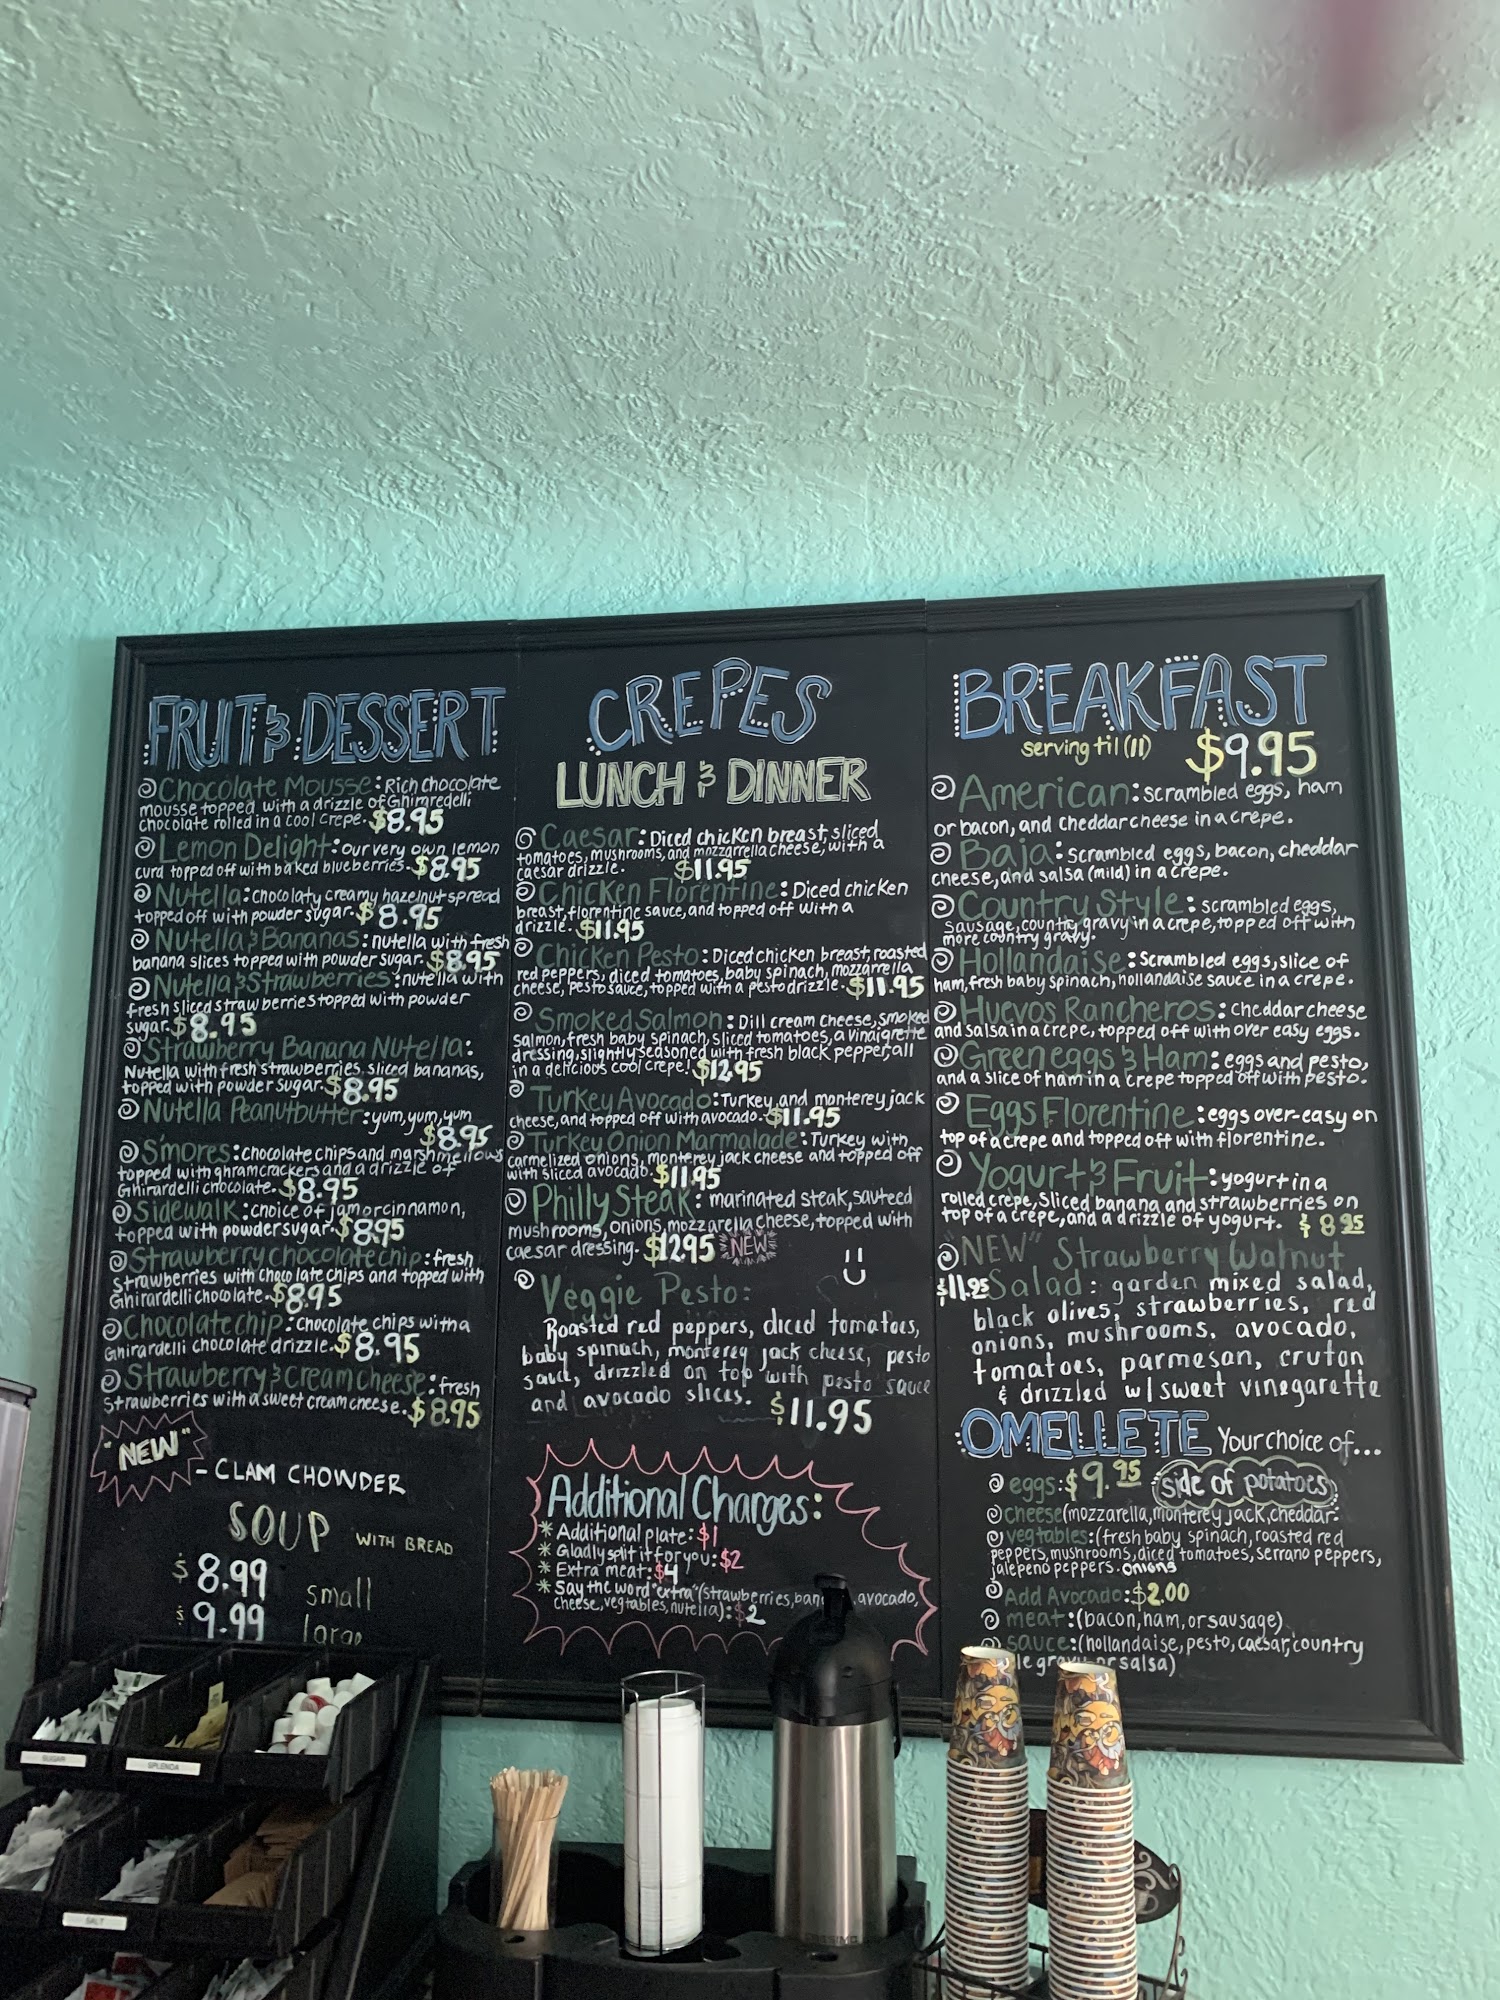 FRUIT & DESSERT
Chocolate Mousse: Rich chocolate
mousse topped with a drizzle of Ghirardelli
chocolate rolled in a cool crepe. $8.95
Lemon Delight: our very own lemon
curd topped off with baked blueberries. $8.95
Nutella: chocolaty creamy hazelnut spread
topped off with powder sugar. $8.95
Nutella & Bananas: nutella with fresh
banana slices topped with powder sugar. $8.95
Nutella & Strawberries: nutella with
fresh sliced strawberries topped with powder
sugar. $8.95
Strawberry Banana Nutella:
Nutella with fresh strawberries, sliced bananas,
topped with powder sugar. $8.95
Nutella Peanutbutter: yum, yum, yum
$8.95
S'mores: chocolate chips and marshmellows
topped with ghramcrackers and a drizzle of
Ghirardelli chocolate. $8.95
Sidewalk: choice of jam or cinnamon,
topped with powder sugar. $8.95
Strawberry chocolate chip: fresh
strawberries with chocolate chips and topped with
Ghirardelli chocolate. $8.95
Chocolate chip: chocolate chips with a
Ghirardelli chocolate drizzle. $8.95
Strawberry & Cream Cheese: fresh
strawberries with a sweet cream cheese. $8.95
"NEW"
- CLAM CHOWDER
SOUP WITH BREAD
$8.99 small
$9.99 large
CREPES
LUNCH & DINNER
Caesar: Diced chicken breast, sliced
tomatoes, mushrooms, and mozzarrella cheese, with a
caesar drizzle. $11.95
Chicken Florentine: Diced chicken
breast, florentine sauce, and topped off with a
drizzle. $11.95
Chicken Pesto: Diced chicken breast, roasted
red peppers, diced tomatoes, baby spinach, mozzarella
cheese, pesto sauce, topped with a pesto drizzle. $11.95
Smoked Salmon: Dill cream cheese, smoked
salmon, fresh baby spinach, sliced tomatoes, a vinaigrette
dressing, slightly seasoned with fresh black pepper, all
in a delicious cool crepe! $12.95
Turkey Avocado: Turkey and monterey jack
cheese, and topped off with avocado. $11.95
Turkey Onion Marmalade: Turkey with
carmelized onions, monterey jack cheese and topped off
with sliced avocado. $11.95
Philly Steak: marinated steak, sauteed
mushrooms, onions, mozzarella cheese, topped with
caesar dressing. $12.95 NEW
Veggie Pesto:
Roasted red peppers, diced tomatoes,
baby spinach, monterey jack cheese, pesto
sauce, drizzled on top with pesto sauce
and avocado slices. $11.95
Additional Charges:
* Additional plate: $1
* Gladly split it for you: $2
* Extra meat: $4
* Say the word "extra" (strawberries, avocado,
cheese, vegtables, nutella): $2
BREAKFAST
serving til (11) $9.95
American: scrambled eggs, ham
or bacon, and cheddar cheese in a crepe.
Baja: scrambled eggs, bacon, cheddar
cheese, and salsa (mild) in a crepe.
Country Style: scrambled eggs,
sausage, country gravy in a crepe, topped off with
more country gravy.
Hollandaise: scrambled eggs, slice of
ham, fresh baby spinach, hollandaise sauce in a crepe.
Huevos Rancheros: cheddar cheese
and salsa in a crepe, topped off with over easy eggs.
Green eggs & Ham: eggs and pesto,
and a slice of ham in a crepe topped off with pesto.
Eggs Florentine: eggs over-easy on
top of a crepe and topped off with florentine.
Yogurt & Fruit: yogurt in a
rolled crepe, sliced banana and strawberries on
top of a crepe, and a drizzle of yogurt. $8.95
NEW" Strawberry Walnut
$11.95 Salad: garden mixed salad,
black olives, strawberries, red
onions, mushrooms, avocado,
tomatoes, parmesan, cruton
& drizzled w/ sweet vinegarette
OMELLETE Your choice of...
eggs: $9.95 side of potatoes
cheese (mozzarella, monterey jack, cheddar.
vegtables: (fresh baby spinach, roasted red
peppers, mushrooms, diced tomatoes, serrano peppers,
jalepeno peppers. onions
Add Avocado: $2.00
meat: (bacon, ham, or sausage)
sauce: (hollandaise, pesto, caesar, country
or salsa)
SUGAR
SPLENDA
SALT